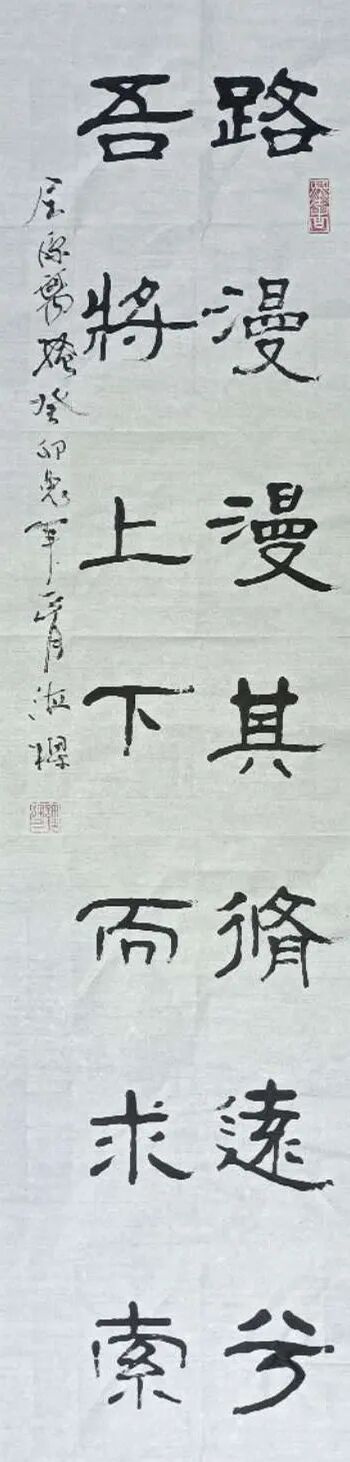 路漫漫其脩遠兮
吾將上下而求索
屈原離騷癸卯兔年正月